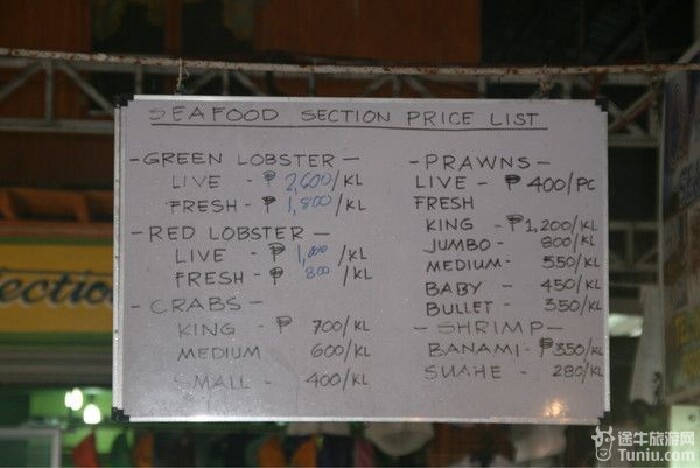 SEAFOOD SECTION PRICE LIST
- GREEN LOBSTER -
LIVE - ₱ 2,600/KL
FRESH - ₱ 1,800/KL
- RED LOBSTER -
LIVE - ₱ 1,000/KL
FRESH - ₱ 800/KL
- CRABS -
KING - ₱ 700/KL
MEDIUM 600/KL
SMALL - 400/KL
- PRAWNS -
LIVE - ₱ 400/PC
FRESH
KING - ₱1,200/KL
JUMBO - 800/KL
MEDIUM - 550/KL
BABY - 450/KL
BULLET - 350/KL
- SHRIMP -
BANAMI - ₱350/KL
SUAHE - 280/KL
ectio
途牛旅游网
Tuniu.com